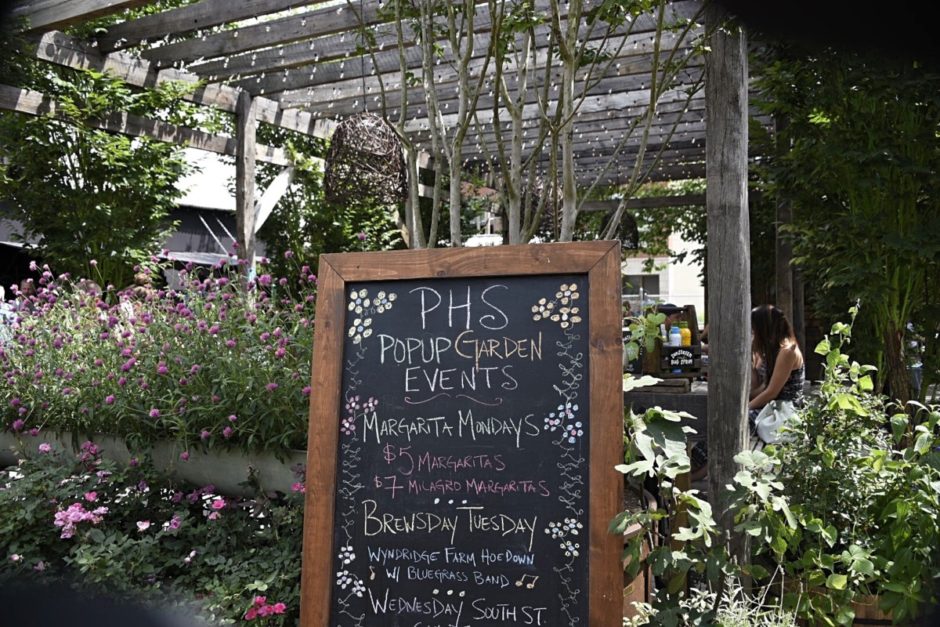 PHS
POPUP GARDEN
EVENTS
MARGARITA MONDAYS
$5 MARGARITAS
$7 MILAGRO MARGARITAS
BREWSDAY TUESDAY
WYNDRIDGE FARM HOEDOWN
W/ BLUEGRASS BAND
WEDNESDAY SOUTH ST.
SUNSCREEN
BUG SPRAY